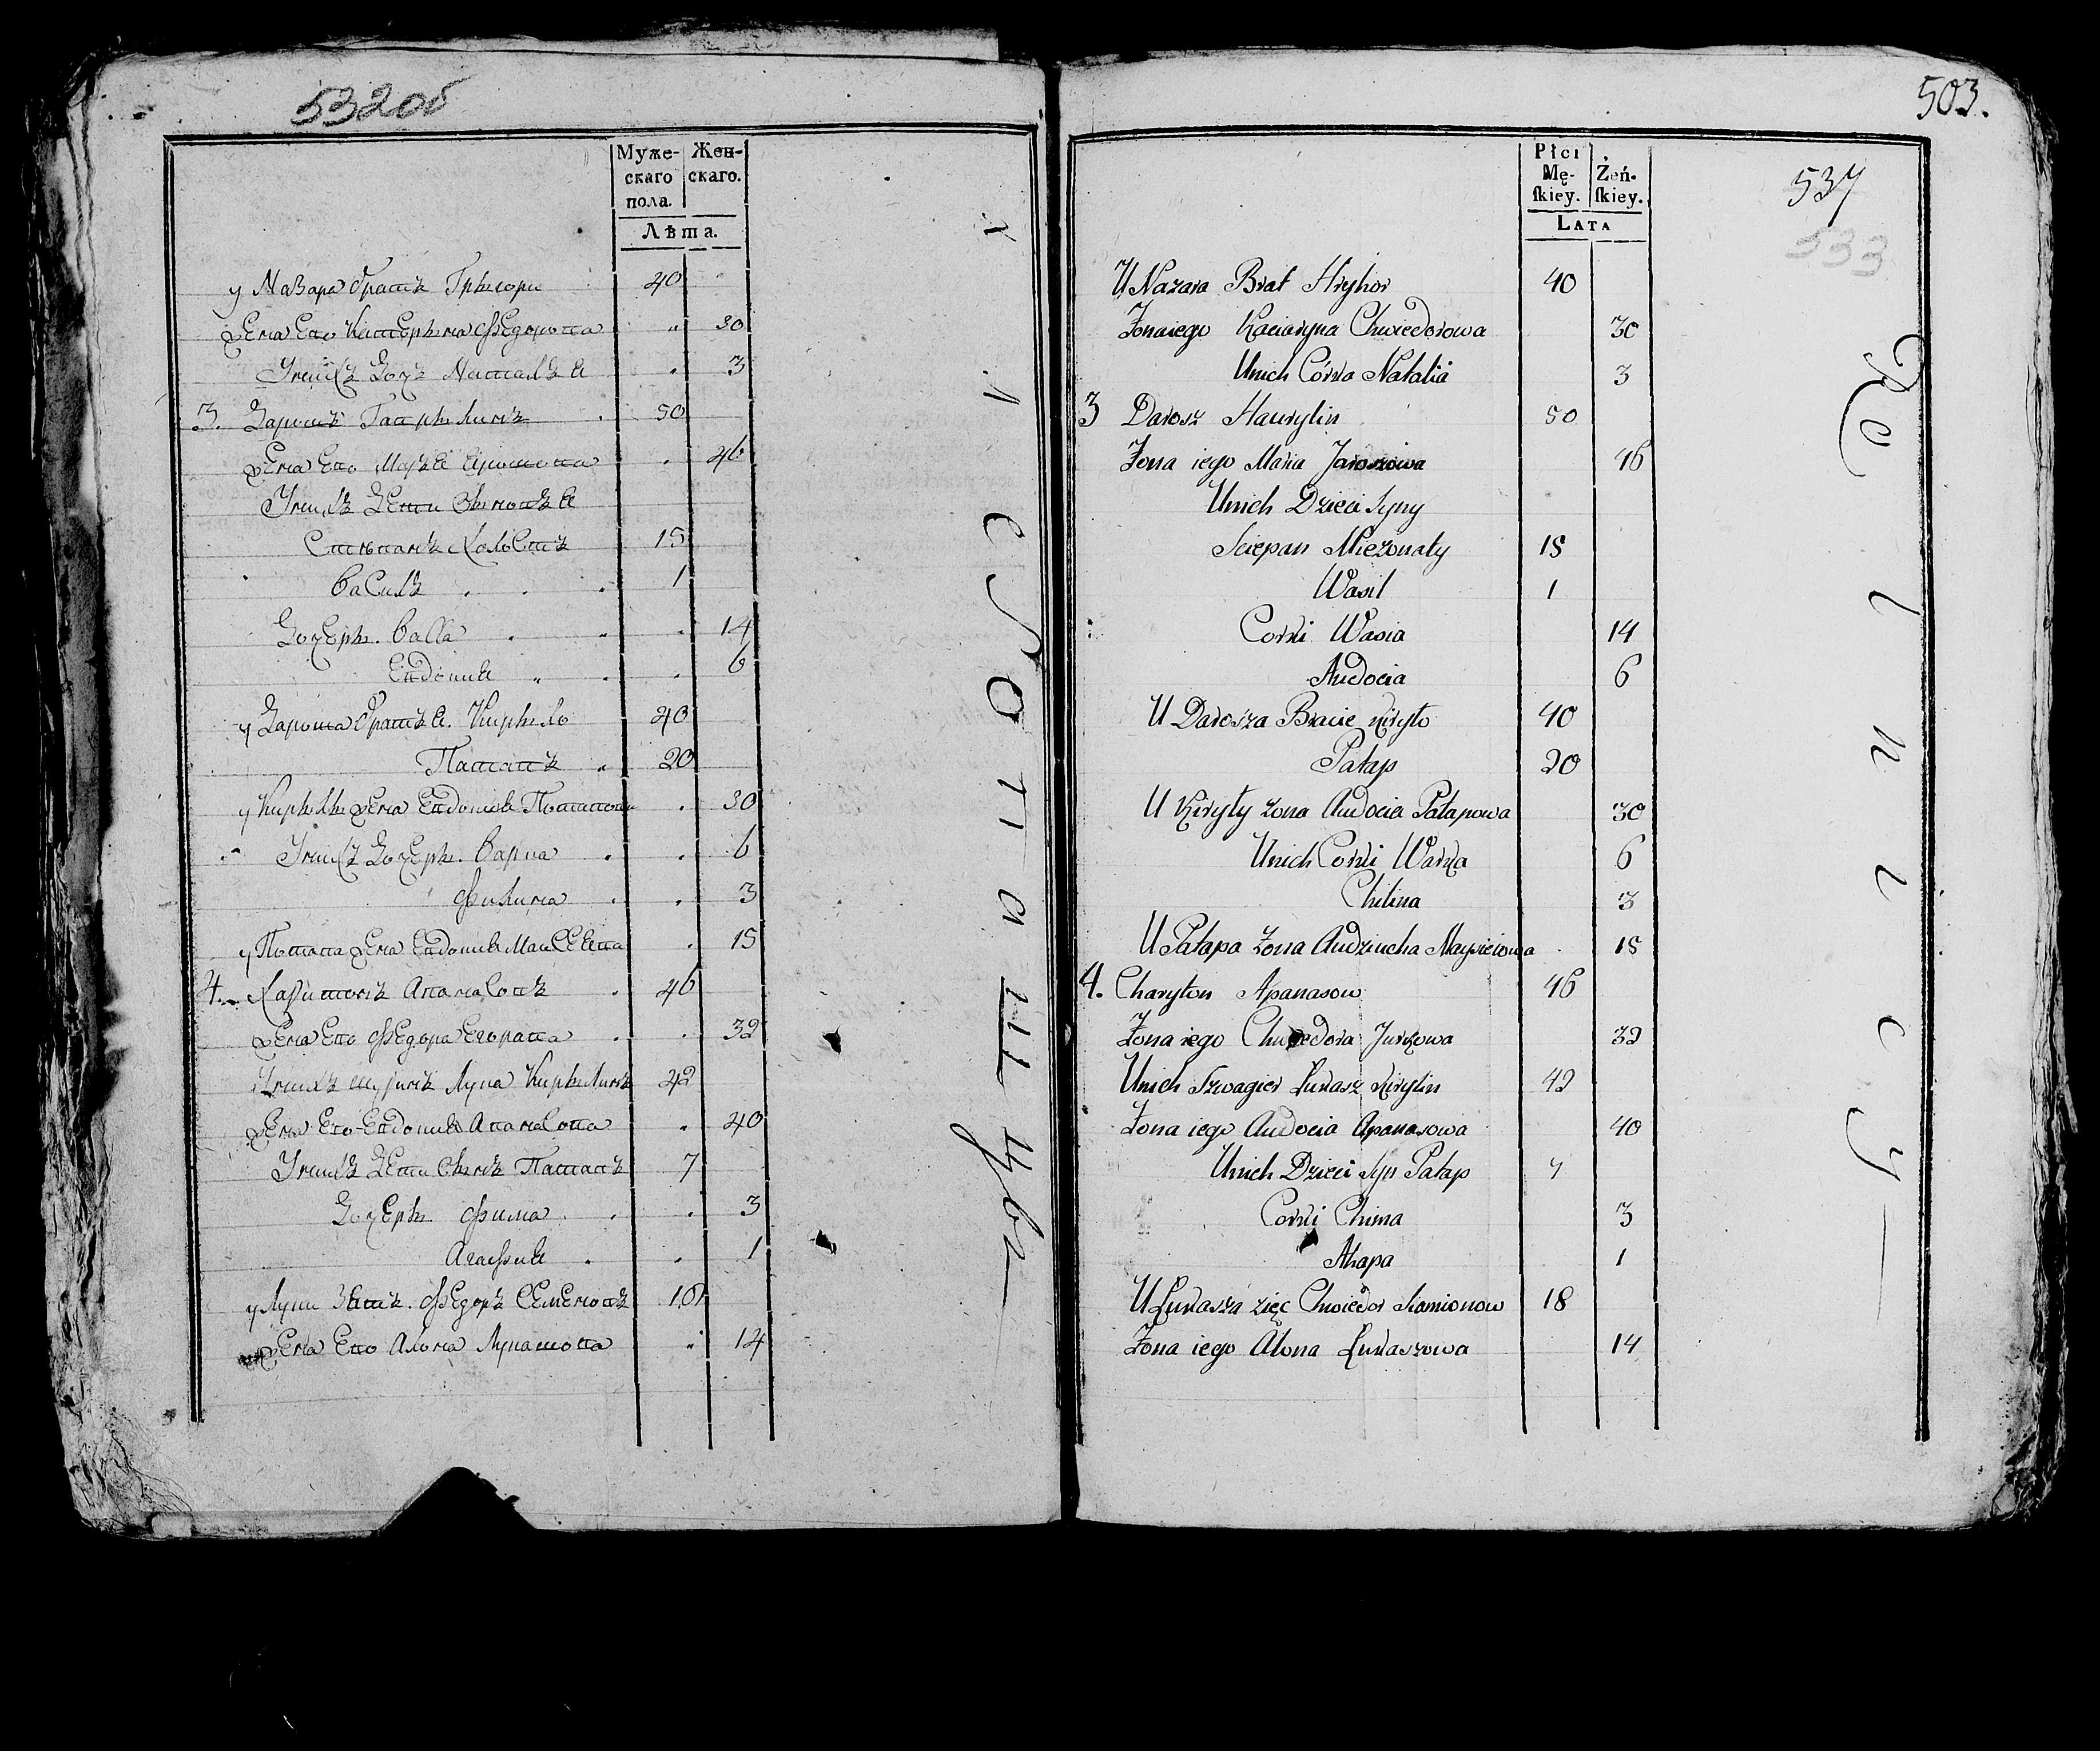 532об
Муже-
скаго
пола.
Жен-
скаго.
Лѣта.
у Назара братъ Грыгори 40
Жена Его Катерына Федорова 30
У нихъ Дочь Наталья 3
3. Дарошъ Гаврылинъ 50
Жена Его Марья Ярошова 46
У нихъ Дети Сыновья
Стѣпанъ Холостъ 15
Василь 1
Дочеры Васса 14
Евдошя 6
у Дароша братья Кирыло 40
Патапъ 20
у Кирылы Жена Евдошя Потапова 30
У нихъ Дочеры Варка 6
Филина 3
у Потапа Жена Евдошя Маисеева 15
4. Харитонъ Апанасовъ 46
Жена Его Федора Егорава 32
У нихъ шуринъ Лука Кирылинъ 42
Жена Его Евдошя Апанасова 40
У нихъ Дети Сынъ Патапъ 7
Дочеры Фима 3
Агафия 1
у Луки Зять Федоръ Семеновъ 18
Жена Его Алона Лукашова 14
503.
537
533
Płci
Mę-
ſkiey.
Żeń-
ſkiey.
LATA
U Nazara Brat Hryhor 40
Żona iego Kaciaryna Chwiedorowa 30
U nich Córka Natalia 3
3 Darosz Hawrylin 50
Żona iego Maria Jaroszowa 46
U nich Dzieci Syny
Sciepan Nieżonaty 15
Wasil 1
Corki Wasia 14
Audocia 6
U Darosza Bracie Kiryło 40
Patap 20
U Kiryły żona Audocia Patapowa 30
U nich Corki Warka 6
Chilina 3
U Patapa Żona Audziucha Maysieiowa 15
4. Charyton Apanasow 46
Żona iego Chwiedora Jurkowa 32
U nich Szwagier Łukasz Kirylin 42
Żona iego Audocia Apanasowa 40
U nich Dzieci Syn Patap 7
Corki Chima 3
Ahapa 1
U Łukasza zięc Chwiedor Siamionow 18
Żona iego Alona Łukaszowa 14